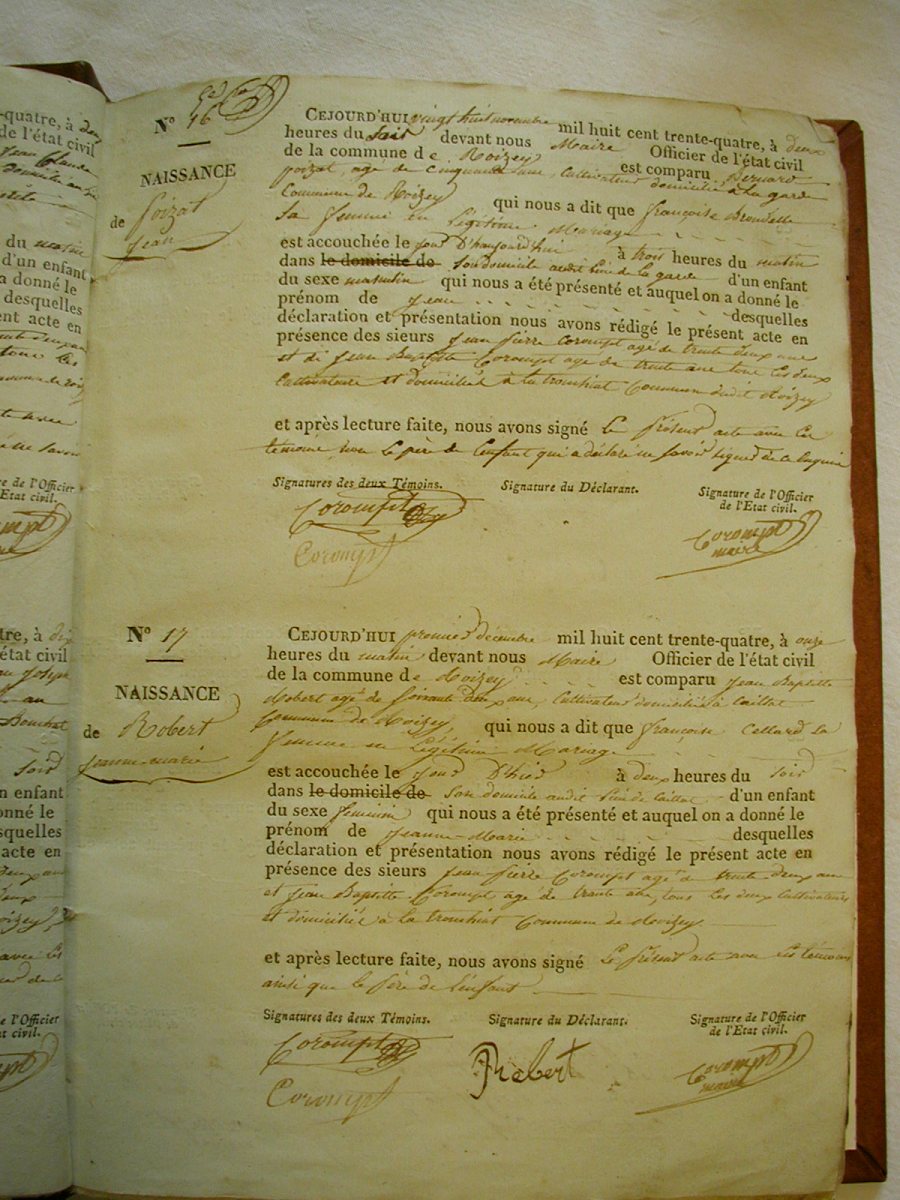 -quatre, à deux
de l'état civil
Jean
du matin
d'un enfant
a donné le
desquelles
ent acte en
e de l'Officier
Etat civil.
tre, à dix
état civil
Joseph
Bouchat
soir
n enfant
onné le
squelles
acte en
e l'Officier
t civil.
Nº 16
NAISSANCE
de Poizat
Jean
CEJOURD'HUI vingt huit novembre mil huit cent trente-quatre, à deux
heures du soir devant nous Maire Officier de l'état civil
de la commune de Roizey est comparu Bernard
poizat, agé de cinquante ans, Cultivateur domicilié à la garde
Commune de Roizey qui nous a dit que françoise
Sa femme en Légitime Mariage
est accouchée le jour D'haujourd'hui à trois heures du matin
dans le domicile de Son domicile audit lieu de la garde d'un enfant
du sexe masculin qui nous a été présenté et auquel on a donné le
prénom de Jean desquelles
déclaration et présentation nous avons rédigé le présent acte en
présence des sieurs Jean Pierre Corompt agé de trente deux ans
et de Jean Baptiste Corompt agé de trente ans tous les deux
Cultivateurs et domiciliés à la tronchiat Commune dudit Roizey
et après lecture faite, nous avons signé Le Présent acte avec les
témoins non Le père de Lenfant qui a déclaré ne Savoir signer de ce Enquis
Signatures des deux Témoins. Signature du Déclarant. Signature de l'Officier
de l'Etat civil.
Corompt
Corompt
Corompt
maire
Nº 17
NAISSANCE
de Robert
Jeanne-marie
CEJOURD'HUI premier décembre mil huit cent trente-quatre, à onze
heures du matin devant nous Maire Officier de l'état civil
de la commune de Roizey est comparu Jean Baptiste
Robert agé de soixante deux ans, Cultivateur domicilié à Caillat
Commune de Roizey qui nous a dit que françoise Cellard Sa
femme en Légitime Mariage
est accouchée le jour D'hier à deux heures du soir
dans le domicile de Son domicile audit lieu de Caillat d'un enfant
du sexe féminin qui nous a été présenté et auquel on a donné le
prénom de Jeanne-Marie desquelles
déclaration et présentation nous avons rédigé le présent acte en
présence des sieurs Jean Pierre Corompt agé de trente deux ans
et Jean Baptiste Corompt agé de trente ans, tous les deux Cultivateurs
et domiciliés à la tronchiat Commune de Roizey
et après lecture faite, nous avons signé Le Présent acte avec Les témoins
ainsi que le Père de L'enfant
Signatures des deux Témoins. Signature du Déclarant. Signature de l'Officier
de l'Etat civil.
Corompt
Robert
Corompt
Corompt
maire